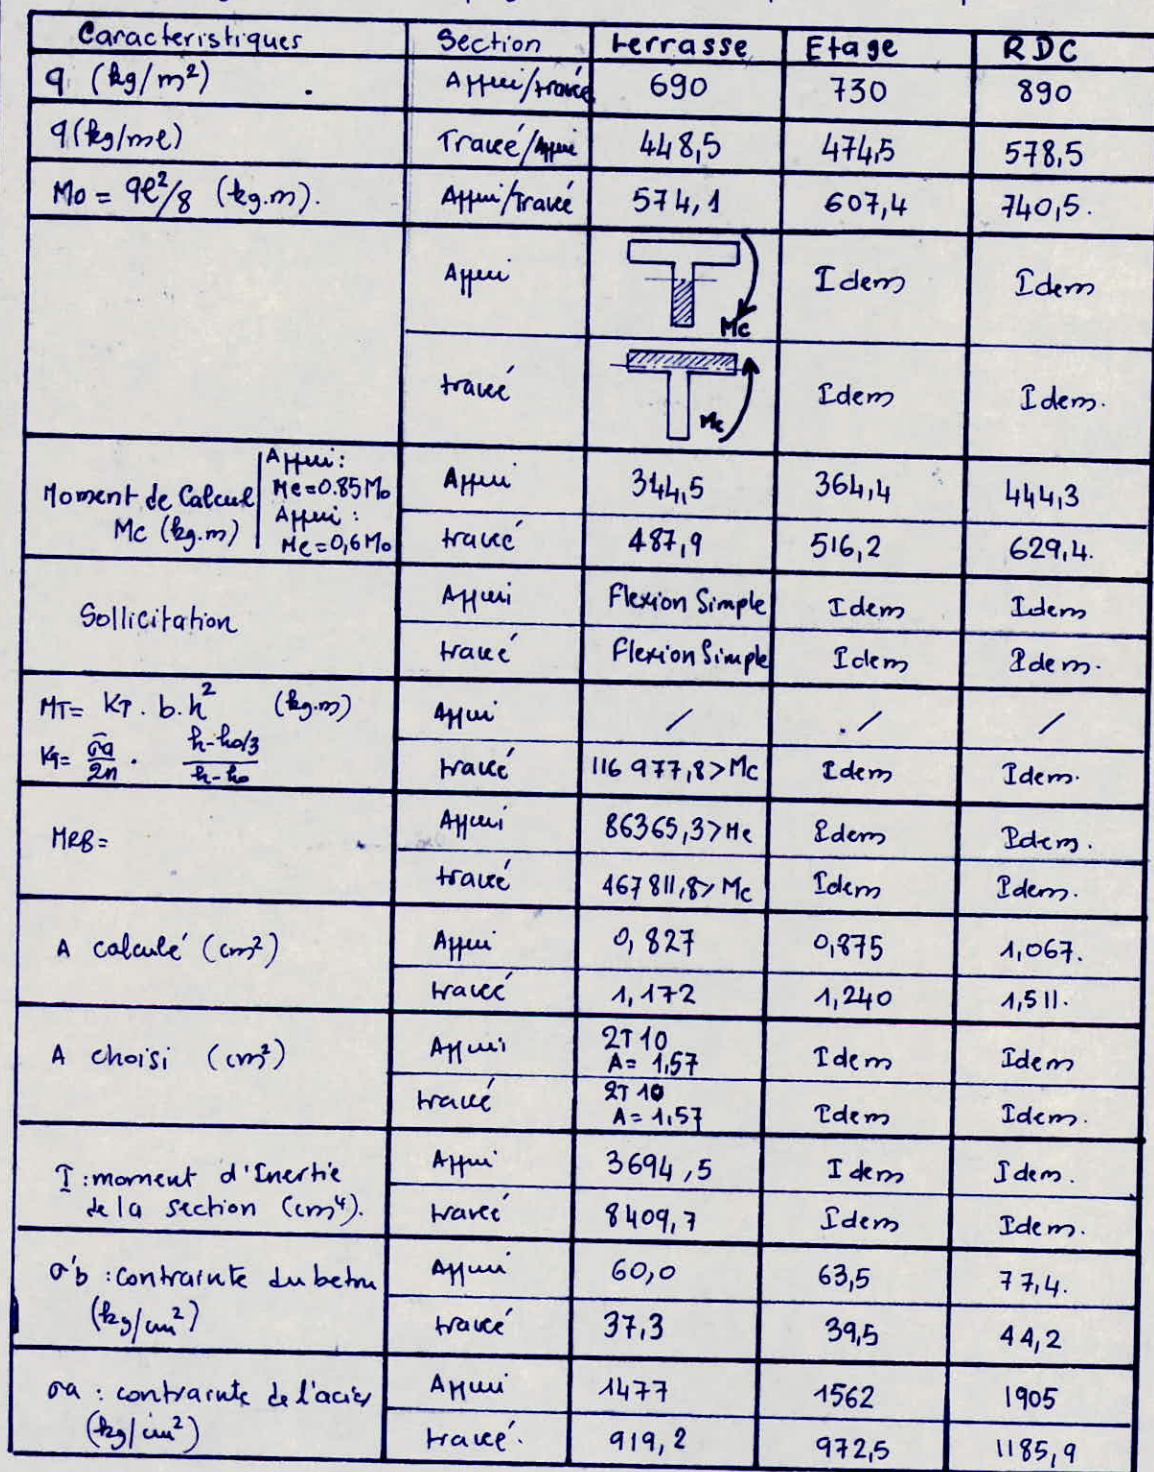 Caracteristiques Section terrasse Etage RDC
q (kg/m²) Appui/travée 690 730 890
q (kg/ml) Travée/Appui 448,5 474,5 578,5
Mo = ql²/8 (kg.m). Appui/Travée 574,1 607,4 740,5.
Appui Mc Idem Idem
travée Mc Idem Idem.
Moment de Calcul Mc (kg.m) Appui: Mc=0.85Mo Appui: Mc=0,6Mo
Appui 344,5 364,4 444,3
travée 487,9 516,2 629,4.
Sollicitation
Appui Flexion Simple Idem Idem
travée Flexion Simple Idem Idem.
MT= KT. b.h² (kg.m) Appui / ./ /
KT= σ̄a/2n . h-ho/3 / h-ho travée 116 977,8>Mc Idem Idem.
MRB=
Appui 86365,3>Mc Idem Idem.
travée 467 811,8>Mc Idem Idem.
A calculé (cm²)
Appui 0,827 0,875 1,067.
travée 1,172 1,240 1,511.
A choisi (cm²)
Appui 2T10 A= 1,57 Idem Idem
travée 2T10 A= 1,57 Idem Idem.
I: moment d'Inertie
de la section (cm⁴).
Appui 3694,5 Idem Idem.
travée 8409,7 Idem Idem.
σ'b : contrainte du beton
(kg/cm²)
Appui 60,0 63,5 77,4.
travée 37,3 39,5 44,2
σa : contrainte de l'acier
(kg/cm²)
Appui 1477 1562 1905
travée. 919,2 972,5 1185,9